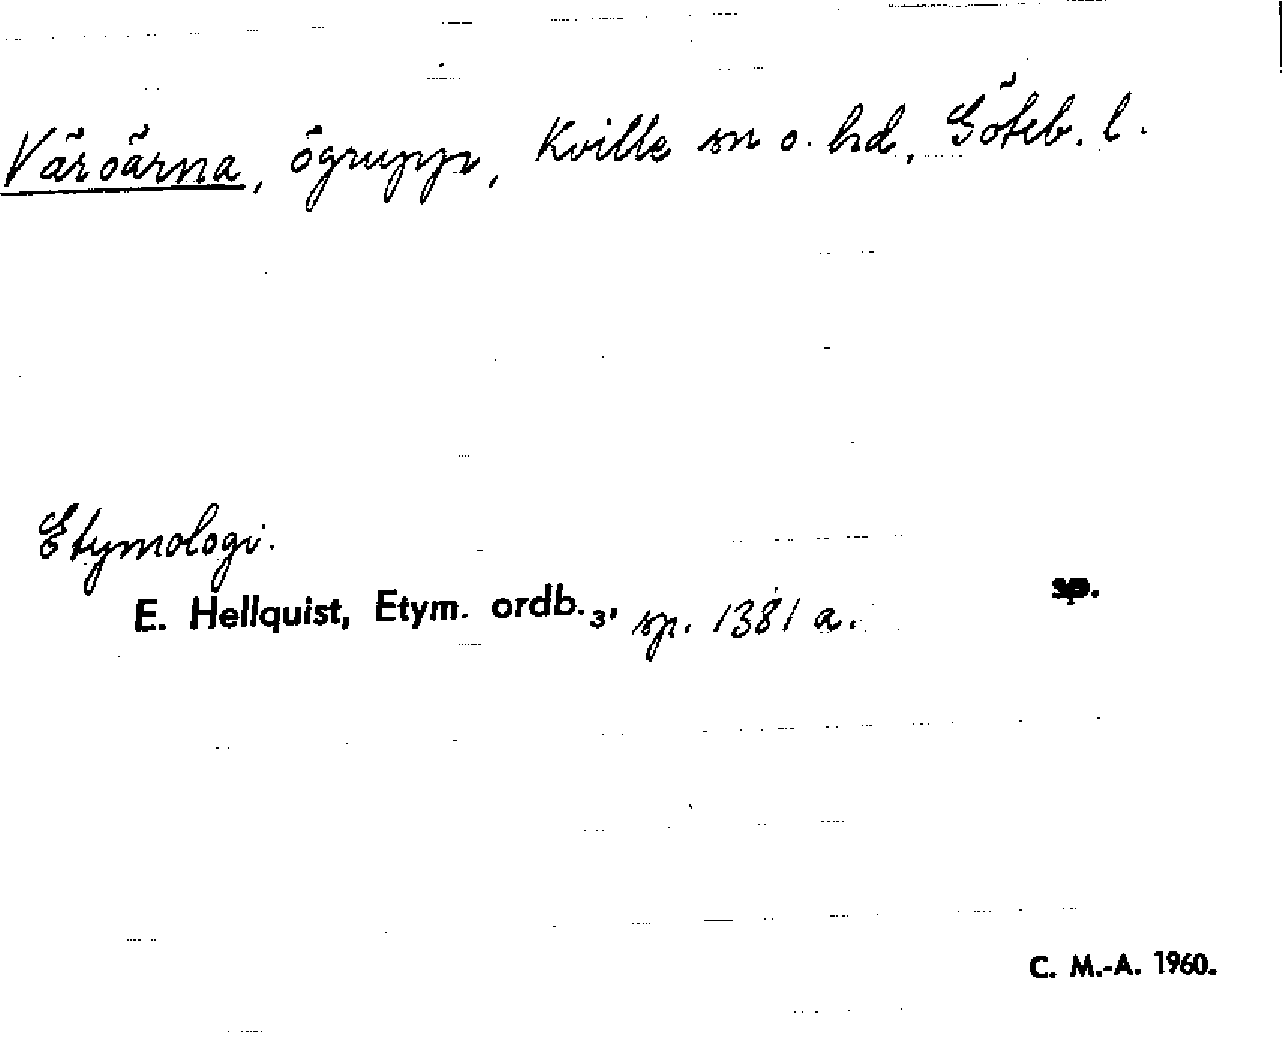 Väröärna, ögrupp, Kville sn o. hd, Göteb. l.
Etymologi.
E. Hellquist, Etym. ordb.₃, sp. 1381 a. sp.
C. M.-A. 1960.